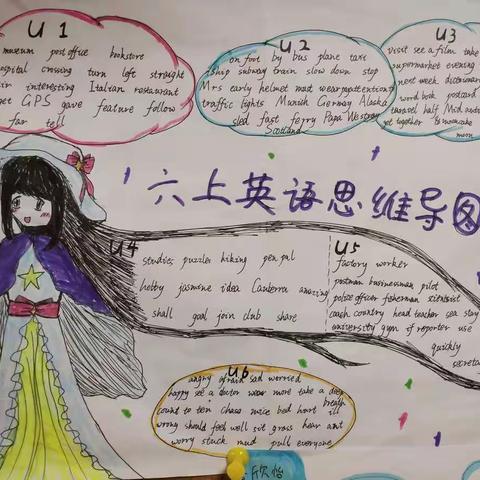 U 1
museum post office bookstore
hospital crossing turn left straight
interesting Italian restaurant
GPS gave feature follow
far tell
U 2
on foot by bus plane taxi
ship subway train slow down stop
Mrs early helmet must wear pay attention
traffic lights Munich Germany Alaska
sled fast ferry Papa Westray
Scotland
U3
visit see a film take
supermarket evening
next week dictionary
word book postcard
half Mid autu
get together mooncake
moon
六上英语思维导图
U4
studies puzzles hiking pen pal
hobby jasmine idea Canberra amazing
shall goal join club share
U5
factory worker
postman businessman pilot
police officer fisherman scientist
coach country head teacher sea stay
university gym if reporter use
quickly
secreta
U6
angry afraid sad worried
happy see a doctor wear more take a deep
breath
count to ten chase mice bad hurt ill
wrong should feel well sit grass hear ant
worry stuck mud pull everyone
欣怡